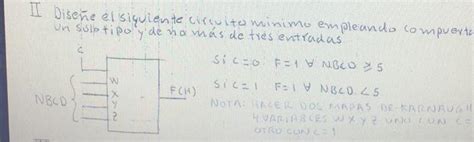 II Diseñe el siguiente circuito mínimo empleando compuerta
un solo tipo y de no más de tres entradas
C
Si C=0 F=1 ∀ NBCD ≥ 5
W
X
Y
Z
NBCD
F(H)
Si C=1 F=1 ∀ NBCD < 5
NOTA: HACER DOS MAPAS DE KARNAUGH
4 VARIABLES W X Y Z UNO CON C=
OTRO CON C=1